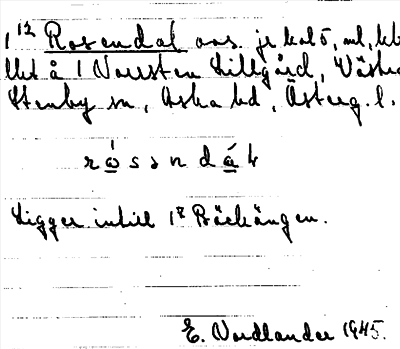 1¹² Rosendal avs. jr kalō, ml, lb
llet å 1 Norrsten Lillgård, Västra
Stenby sn, Aska hd, Österg. l.
r ó s ə n d á l
Ligger intill 1⁸ Bäckängen.
E. Nordlander 1945.